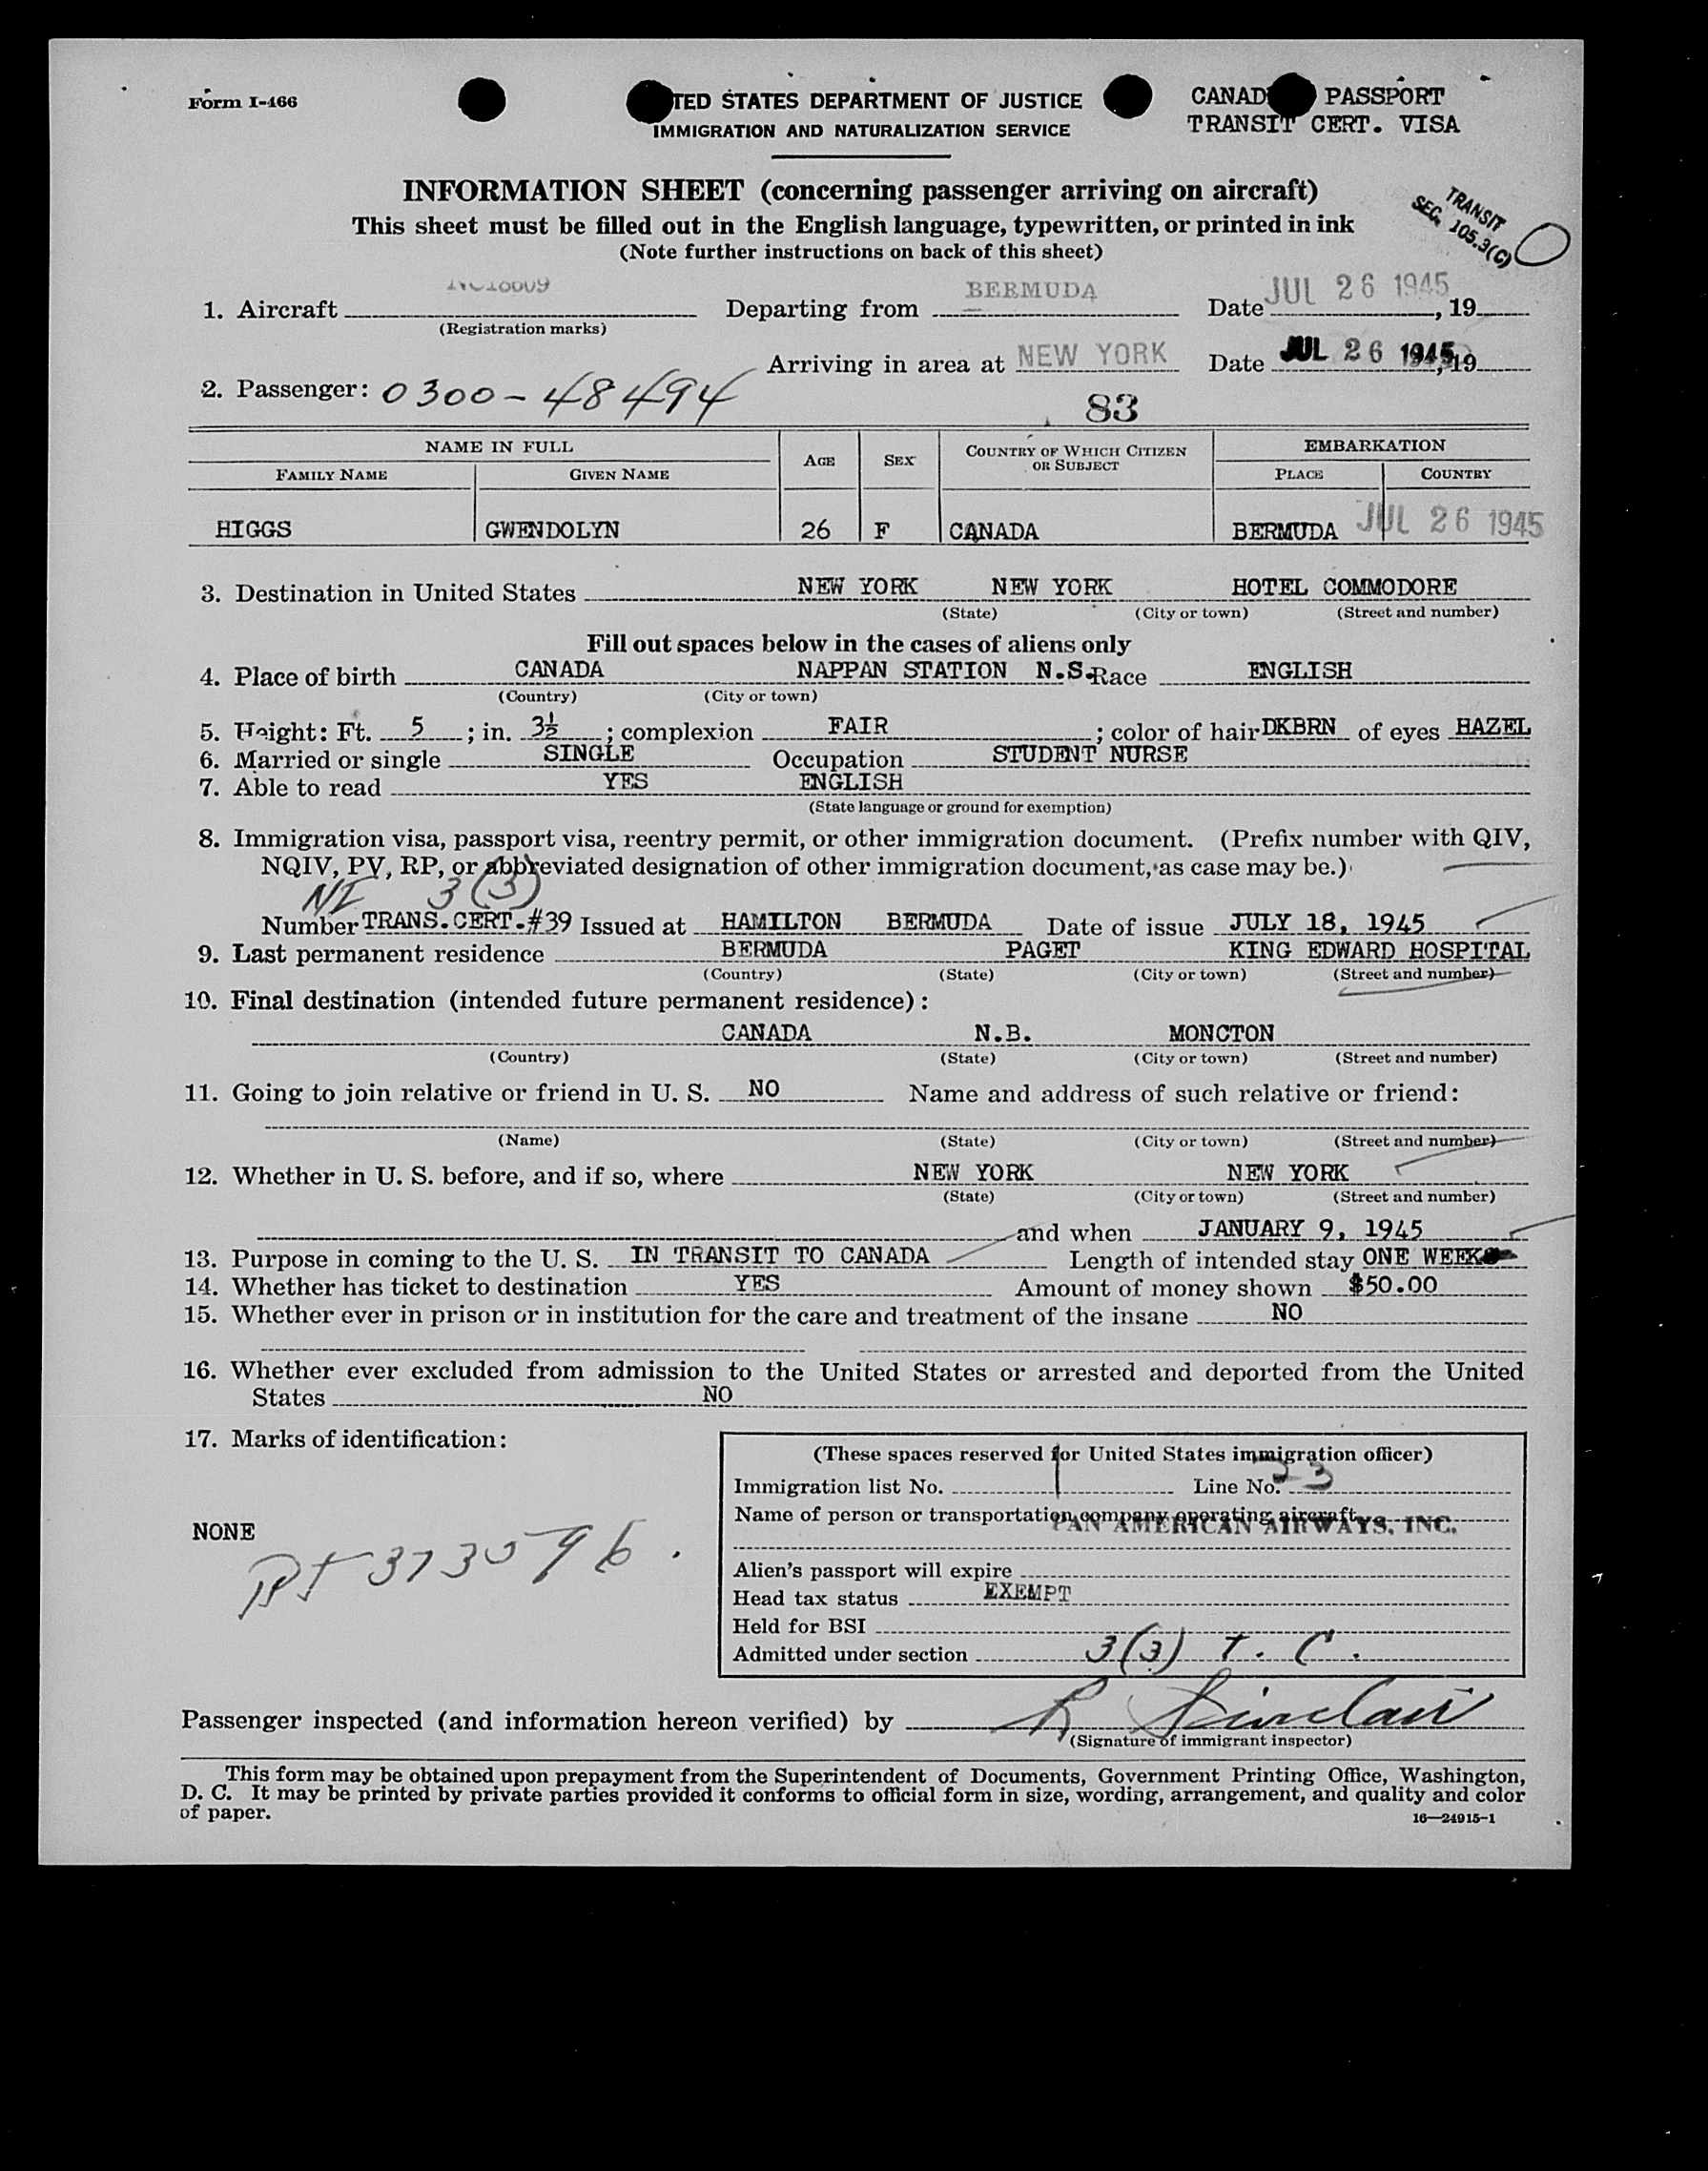 Form I-466
TED STATES DEPARTMENT OF JUSTICE
IMMIGRATION AND NATURALIZATION SERVICE
CANAD PASSPORT
TRANSIT CERT. VISA
INFORMATION SHEET (concerning passenger arriving on aircraft)
This sheet must be filled out in the English language, typewritten, or printed in ink
(Note further instructions on back of this sheet)
TRANSIT
SEC. 105.3(C)
1. Aircraft Departing from BERMUDA Date JUL 26 1945, 19
(Registration marks)
Arriving in area at NEW YORK Date JUL 26 1945, 19
2. Passenger: 0300-48494
83
NAME IN FULL AGE SEX COUNTRY OF WHICH CITIZEN OR SUBJECT EMBARKATION
FAMILY NAME GIVEN NAME PLACE COUNTRY
HIGGS GWENDOLYN 26 F CANADA BERMUDA JUL 26 1945
3. Destination in United States NEW YORK NEW YORK HOTEL COMMODORE
(State) (City or town) (Street and number)
Fill out spaces below in the cases of aliens only
4. Place of birth CANADA NAPPAN STATION N.S. Race ENGLISH
(Country) (City or town)
5. Height: Ft. 5 ; in. 3½ ; complexion FAIR ; color of hair DKBRN of eyes HAZEL
6. Married or single SINGLE Occupation STUDENT NURSE
7. Able to read YES ENGLISH
(State language or ground for exemption)
8. Immigration visa, passport visa, reentry permit, or other immigration document. (Prefix number with QIV,
NQIV, PV, RP, or abbreviated designation of other immigration document, as case may be.)
NI 3 (3)
Number TRANS. CERT. #39 Issued at HAMILTON BERMUDA Date of issue JULY 18, 1945
9. Last permanent residence BERMUDA PAGET KING EDWARD HOSPITAL
(Country) (State) (City or town) (Street and number)
10. Final destination (intended future permanent residence):
CANADA N.B. MONCTON
(Country) (State) (City or town) (Street and number)
11. Going to join relative or friend in U. S. NO Name and address of such relative or friend:
(Name) (State) (City or town) (Street and number)
12. Whether in U. S. before, and if so, where NEW YORK NEW YORK
(State) (City or town) (Street and number)
and when JANUARY 9, 1945
13. Purpose in coming to the U. S. IN TRANSIT TO CANADA Length of intended stay ONE WEEK
14. Whether has ticket to destination YES Amount of money shown $50.00
15. Whether ever in prison or in institution for the care and treatment of the insane NO
16. Whether ever excluded from admission to the United States or arrested and deported from the United
States NO
17. Marks of identification:
NONE
(These spaces reserved for United States immigration officer)
Immigration list No. 1 Line No. 23
Name of person or transportation company operating aircraft
PAN AMERICAN AIRWAYS, INC.
Alien's passport will expire
Head tax status EXEMPT
Held for BSI
Admitted under section 3(3) T. C.
Passenger inspected (and information hereon verified) by R Sinclair
(Signature of immigrant inspector)
This form may be obtained upon prepayment from the Superintendent of Documents, Government Printing Office, Washington,
D. C. It may be printed by private parties provided it conforms to official form in size, wording, arrangement, and quality and color
of paper.
16—24915-1